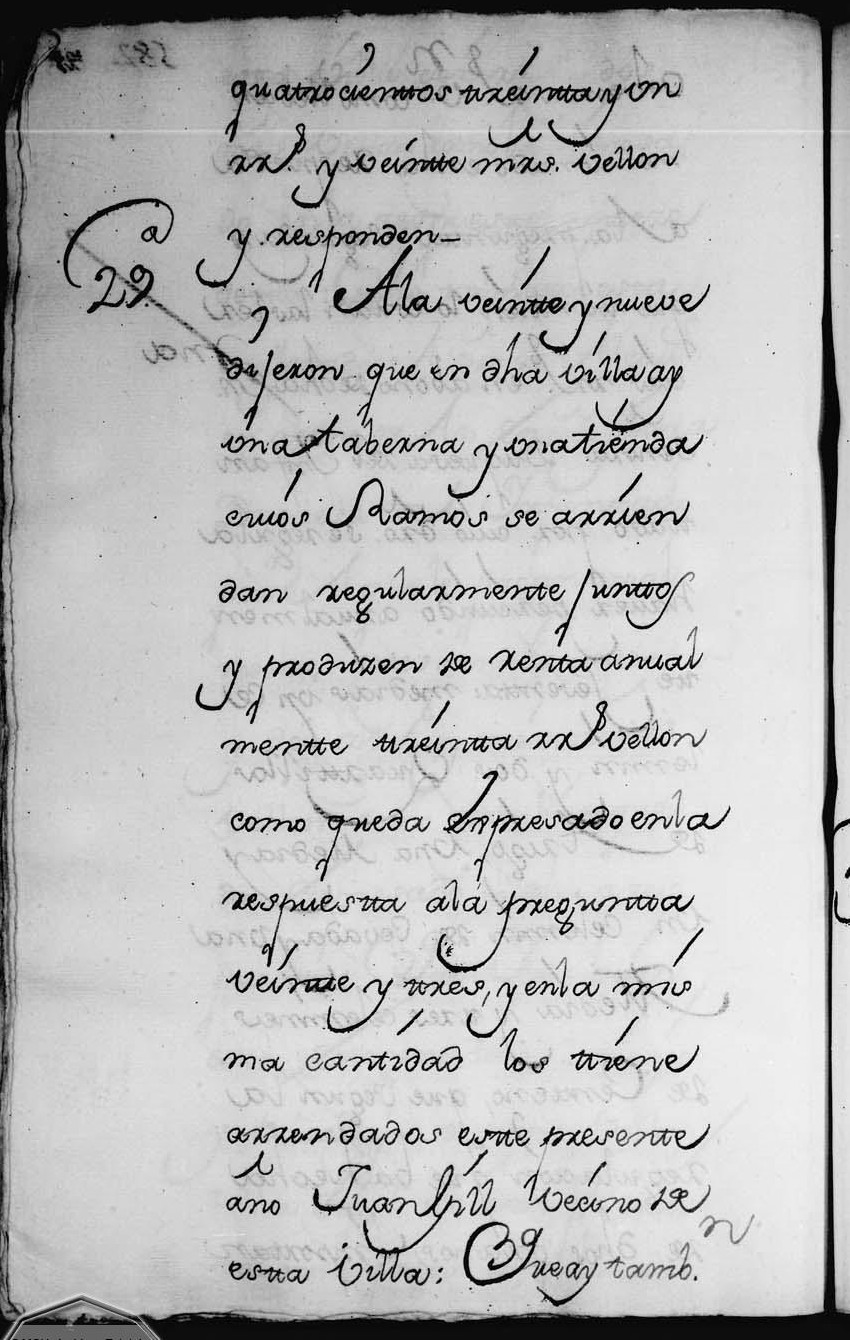 quatrocienttos ttreintta y un
rrs. y veintte mrs. vellon
y responden—
29.a
A la veintte y nueve
dijeron que en dha villa ay
una taberna y una tienda
cuios Ramos se arrien
dan regularmente junttos
y produzen de renta anual
mentte ttreintta rrs vellon
como queda expresado en la
respuestta a la preguntta
veintte y ttres, y en la mis
ma cantidad los ttiene
arrendados estte presentte
año Juan Gill Vecino de
estta Villa: Que ay tambn.